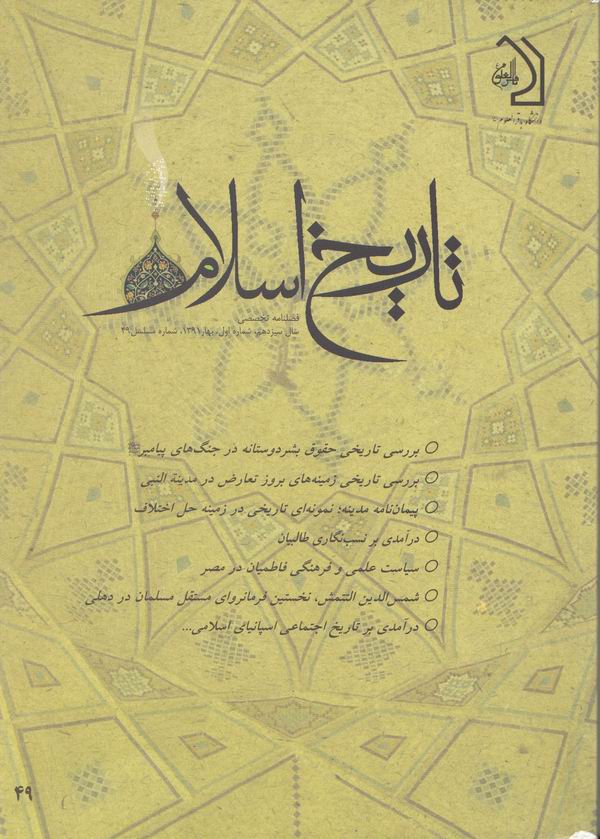 باقرالعلوم
دانشگاه باقرالعلوم
تاریخ اسلام
فصلنامه تخصصی
سال سیزدهم، شماره اول، بهار ۱۳۹۱، شماره مسلسل ۴۹
بررسی تاریخی حقوق بشردوستانه در جنگ‌های پیامبرﷺ
بررسی تاریخی زمینه‌های بروز تعارض در مدینة النبی
پیمان‌نامه مدینه؛ نمونه‌ای تاریخی در زمینه حل اختلاف
درآمدی بر نسب‌نگاری طالبیان
سیاست علمی و فرهنگی فاطمیان در مصر
شمس‌الدین التتمش، نخستین فرمانروای مستقل مسلمان در دهلی
درآمدی بر تاریخ اجتماعی اسپانیای اسلامی...
۴۹